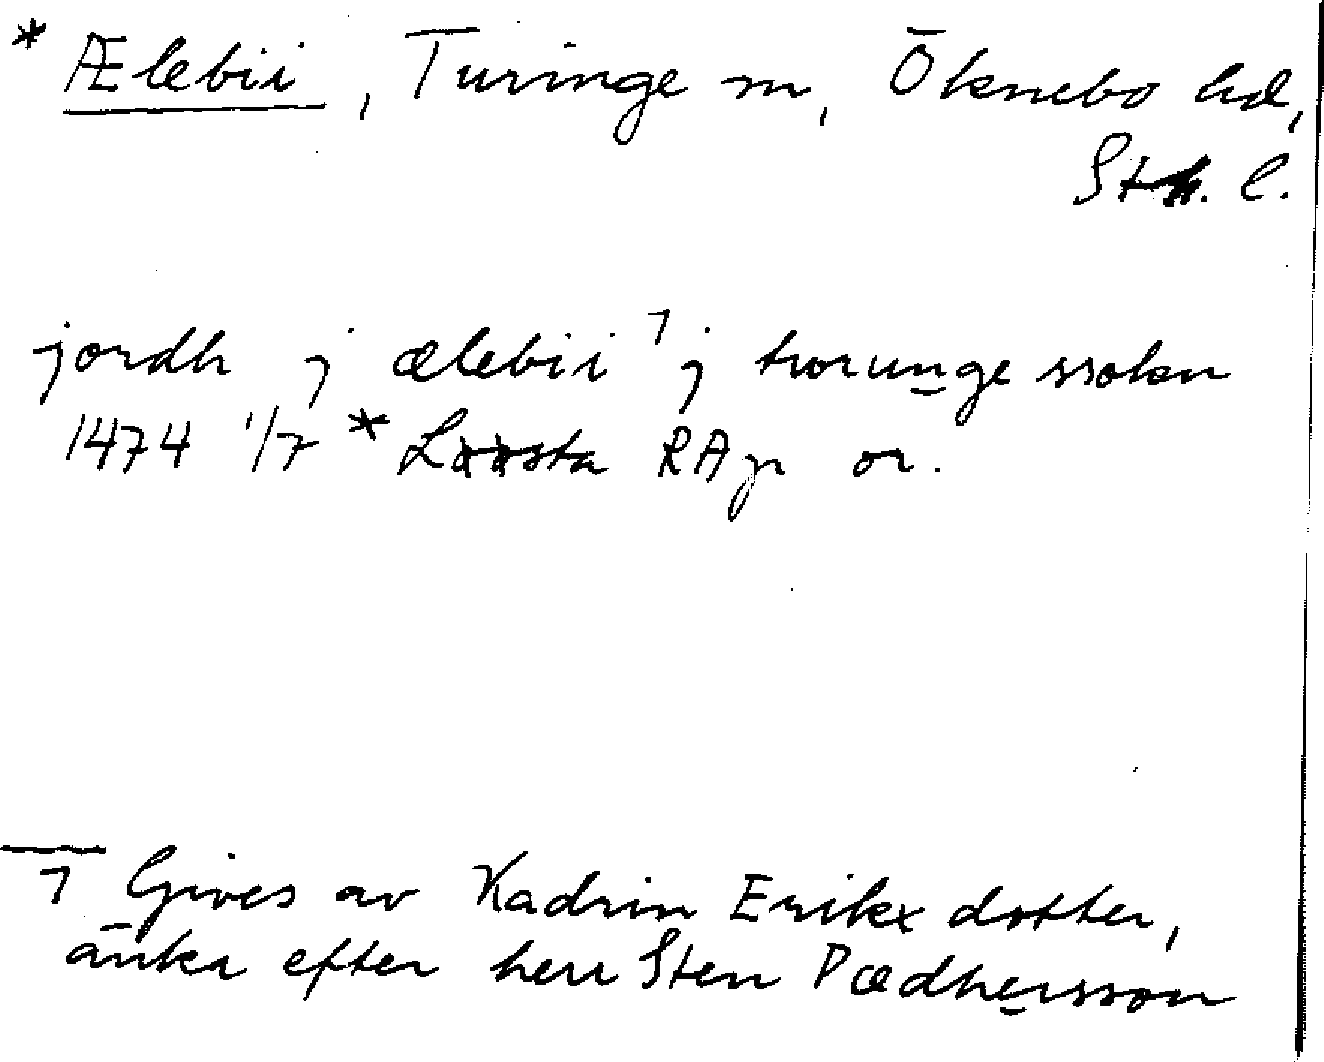 * Ælebii, Turinge sn, Öknebo hd,
Sth. l.
jordh j ælebii ⁊ j tworunge ssokn
1474 1/7 * Lxxsta RAp or.
⁊ Gives av Kadrin Erikx dotter,
änka efter herr Sten Pædhersson